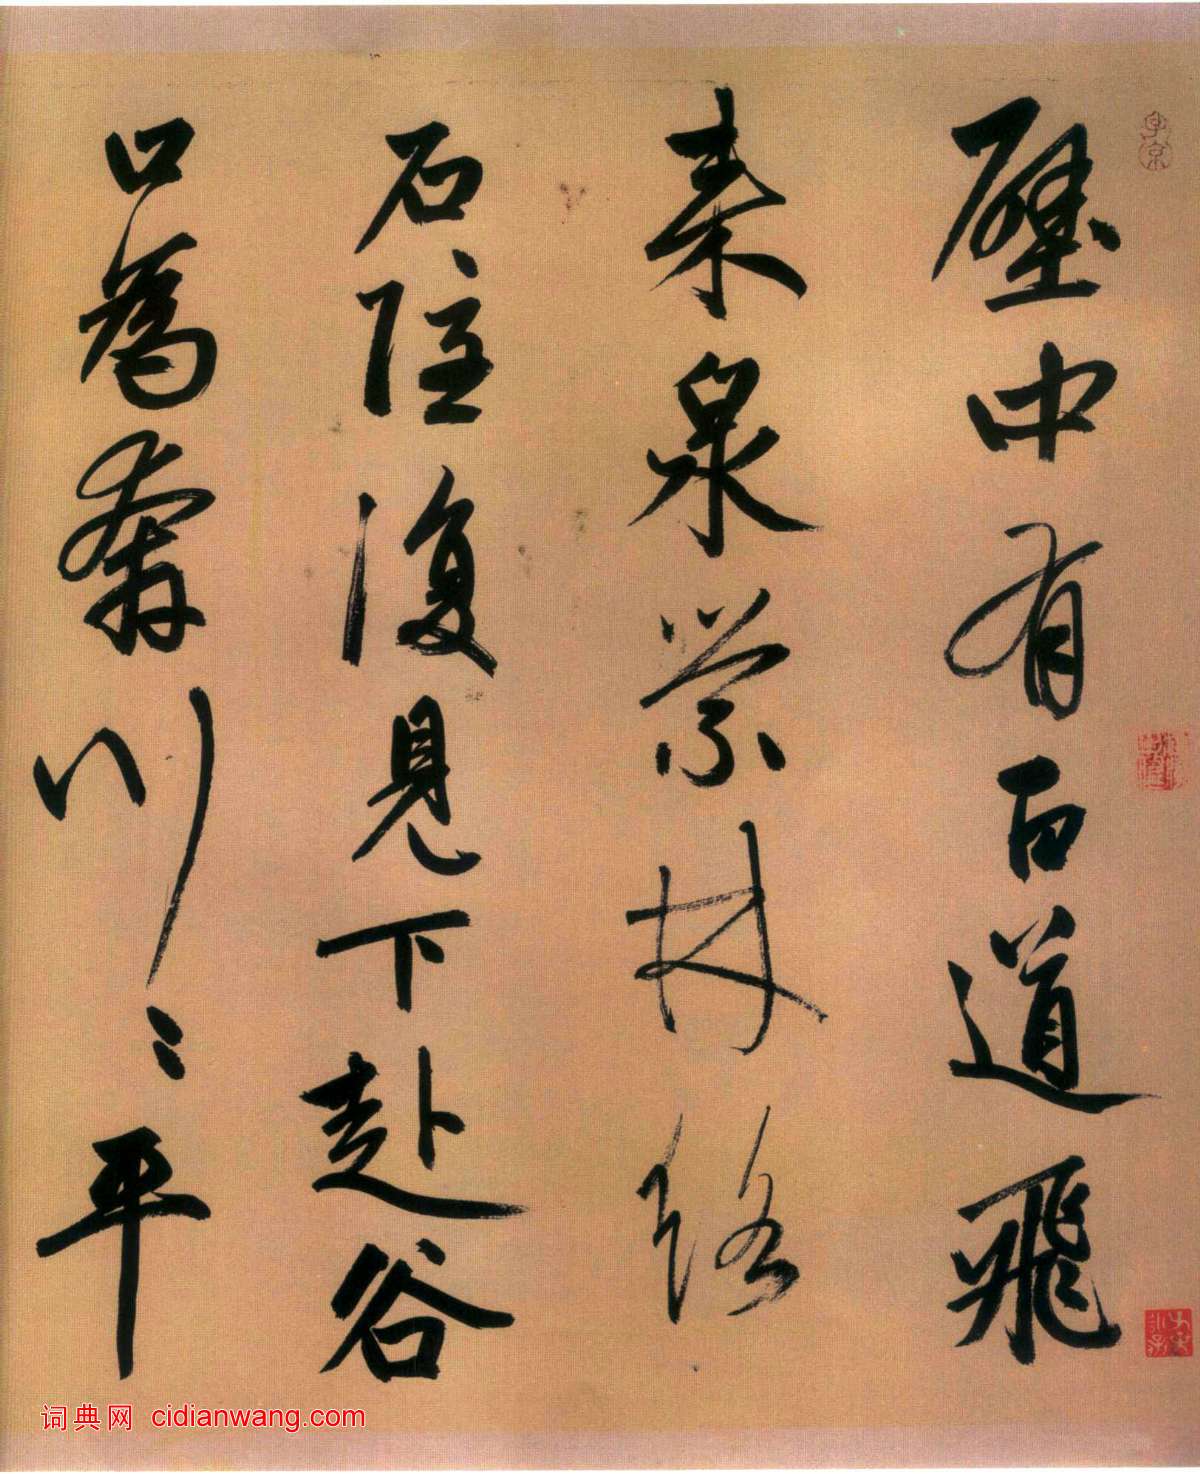 壁中有百道飛
來泉縈林絡
石隱復見下赴谷
口為奔川川〻平
詞典网 cidianwang.com